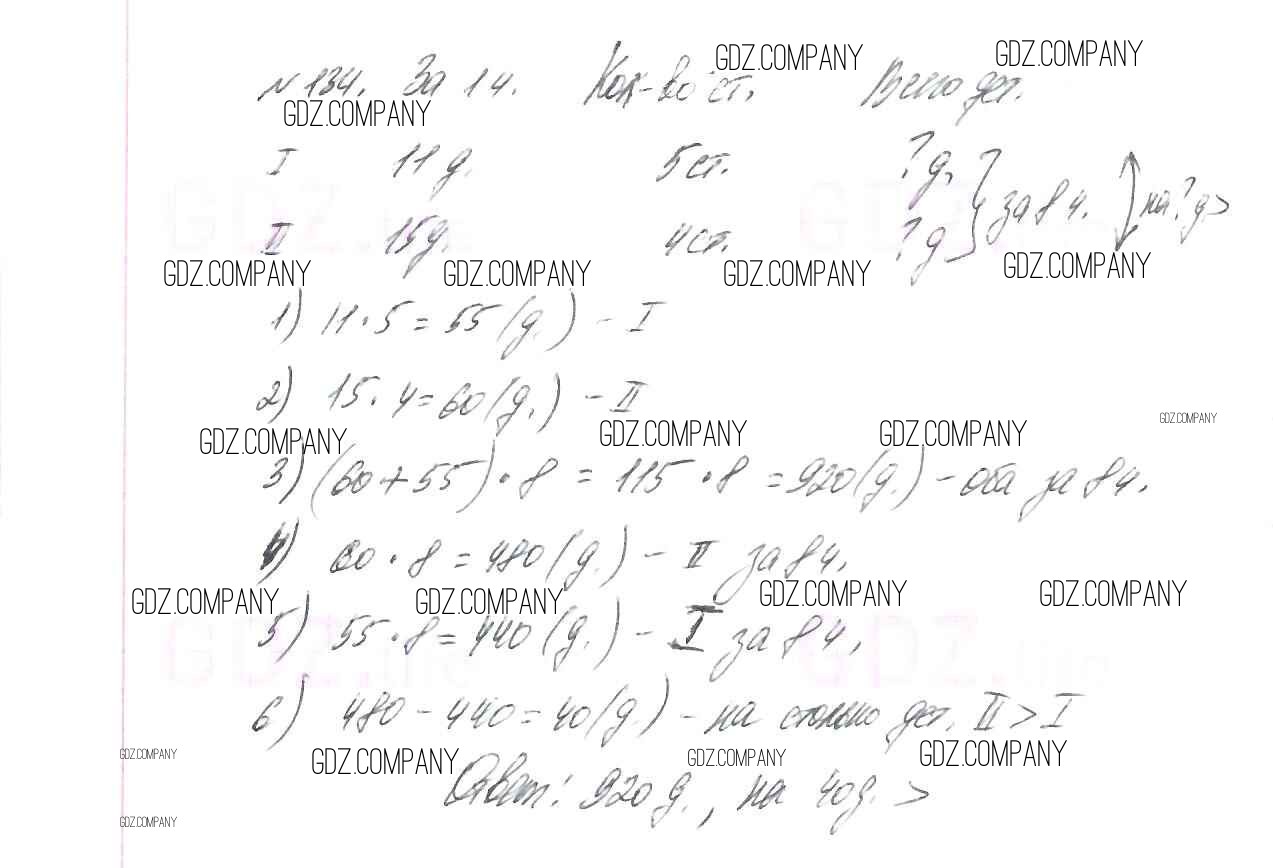 GDZ.COMPANY GDZ.COMPANY
№134. За 1ч. Кол-во ст. Всего дет.
GDZ.COMPANY
I 11 д. 5 ст. ? д. } ? за 8 ч. на ? д >
II 15 д. 4 ст. ? д
GDZ.COMPANY GDZ.COMPANY GDZ.COMPANY GDZ.COMPANY
1) 11 · 5 = 55 (д.) - I
2) 15 · 4 = 60 (д.) - II
GDZ.COMPANY GDZ.COMPANY GDZ.COMPANY GDZ.COMPANY
3) (60 + 55) · 8 = 115 · 8 = 920 (д.) - оба за 8 ч.
4) 60 · 8 = 480 (д.) - II за 8 ч.
GDZ.COMPANY GDZ.COMPANY GDZ.COMPANY GDZ.COMPANY
5) 55 · 8 = 440 (д.) - I за 8 ч.
6) 480 - 440 = 40 (д.) - на столько дет. II > I
GDZ.COMPANY GDZ.COMPANY GDZ.COMPANY GDZ.COMPANY
Ответ: 920 д., на 40 д. >
GDZ.COMPANY